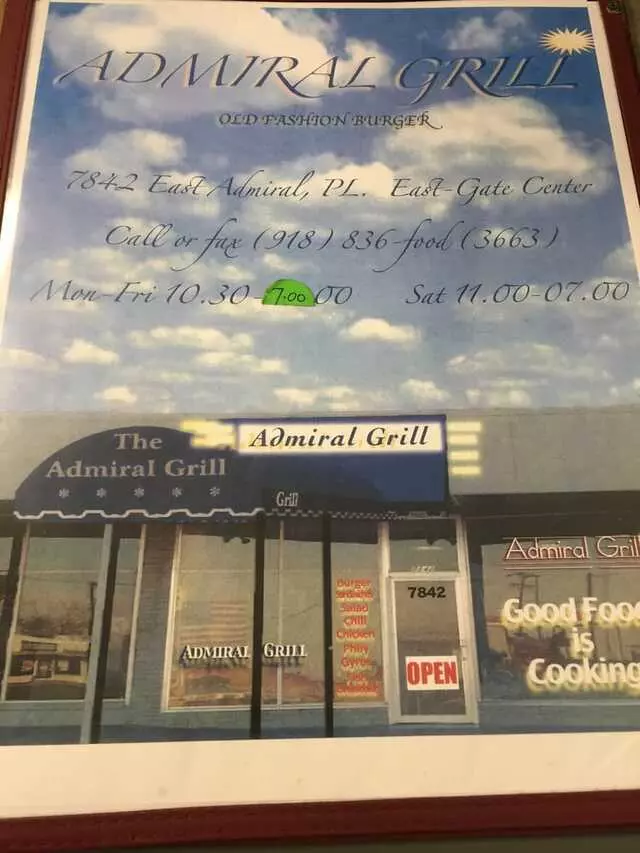 ADMIRAL GRILL
OLD FASHION BURGER
7842 East Admiral, PL. East-Gate Center
Call or fax (918) 836-food (3663)
Mon-Fri 10.30-7.00 00 Sat 11.00-07.00
The
Admiral Grill
Admiral Grill
Grill
Admiral Gril
7842
Burger
Salad
Chili
Chicken
Philly
Gyros
Good Food
is
Cooking
ADMIRAL GRILL
OPEN